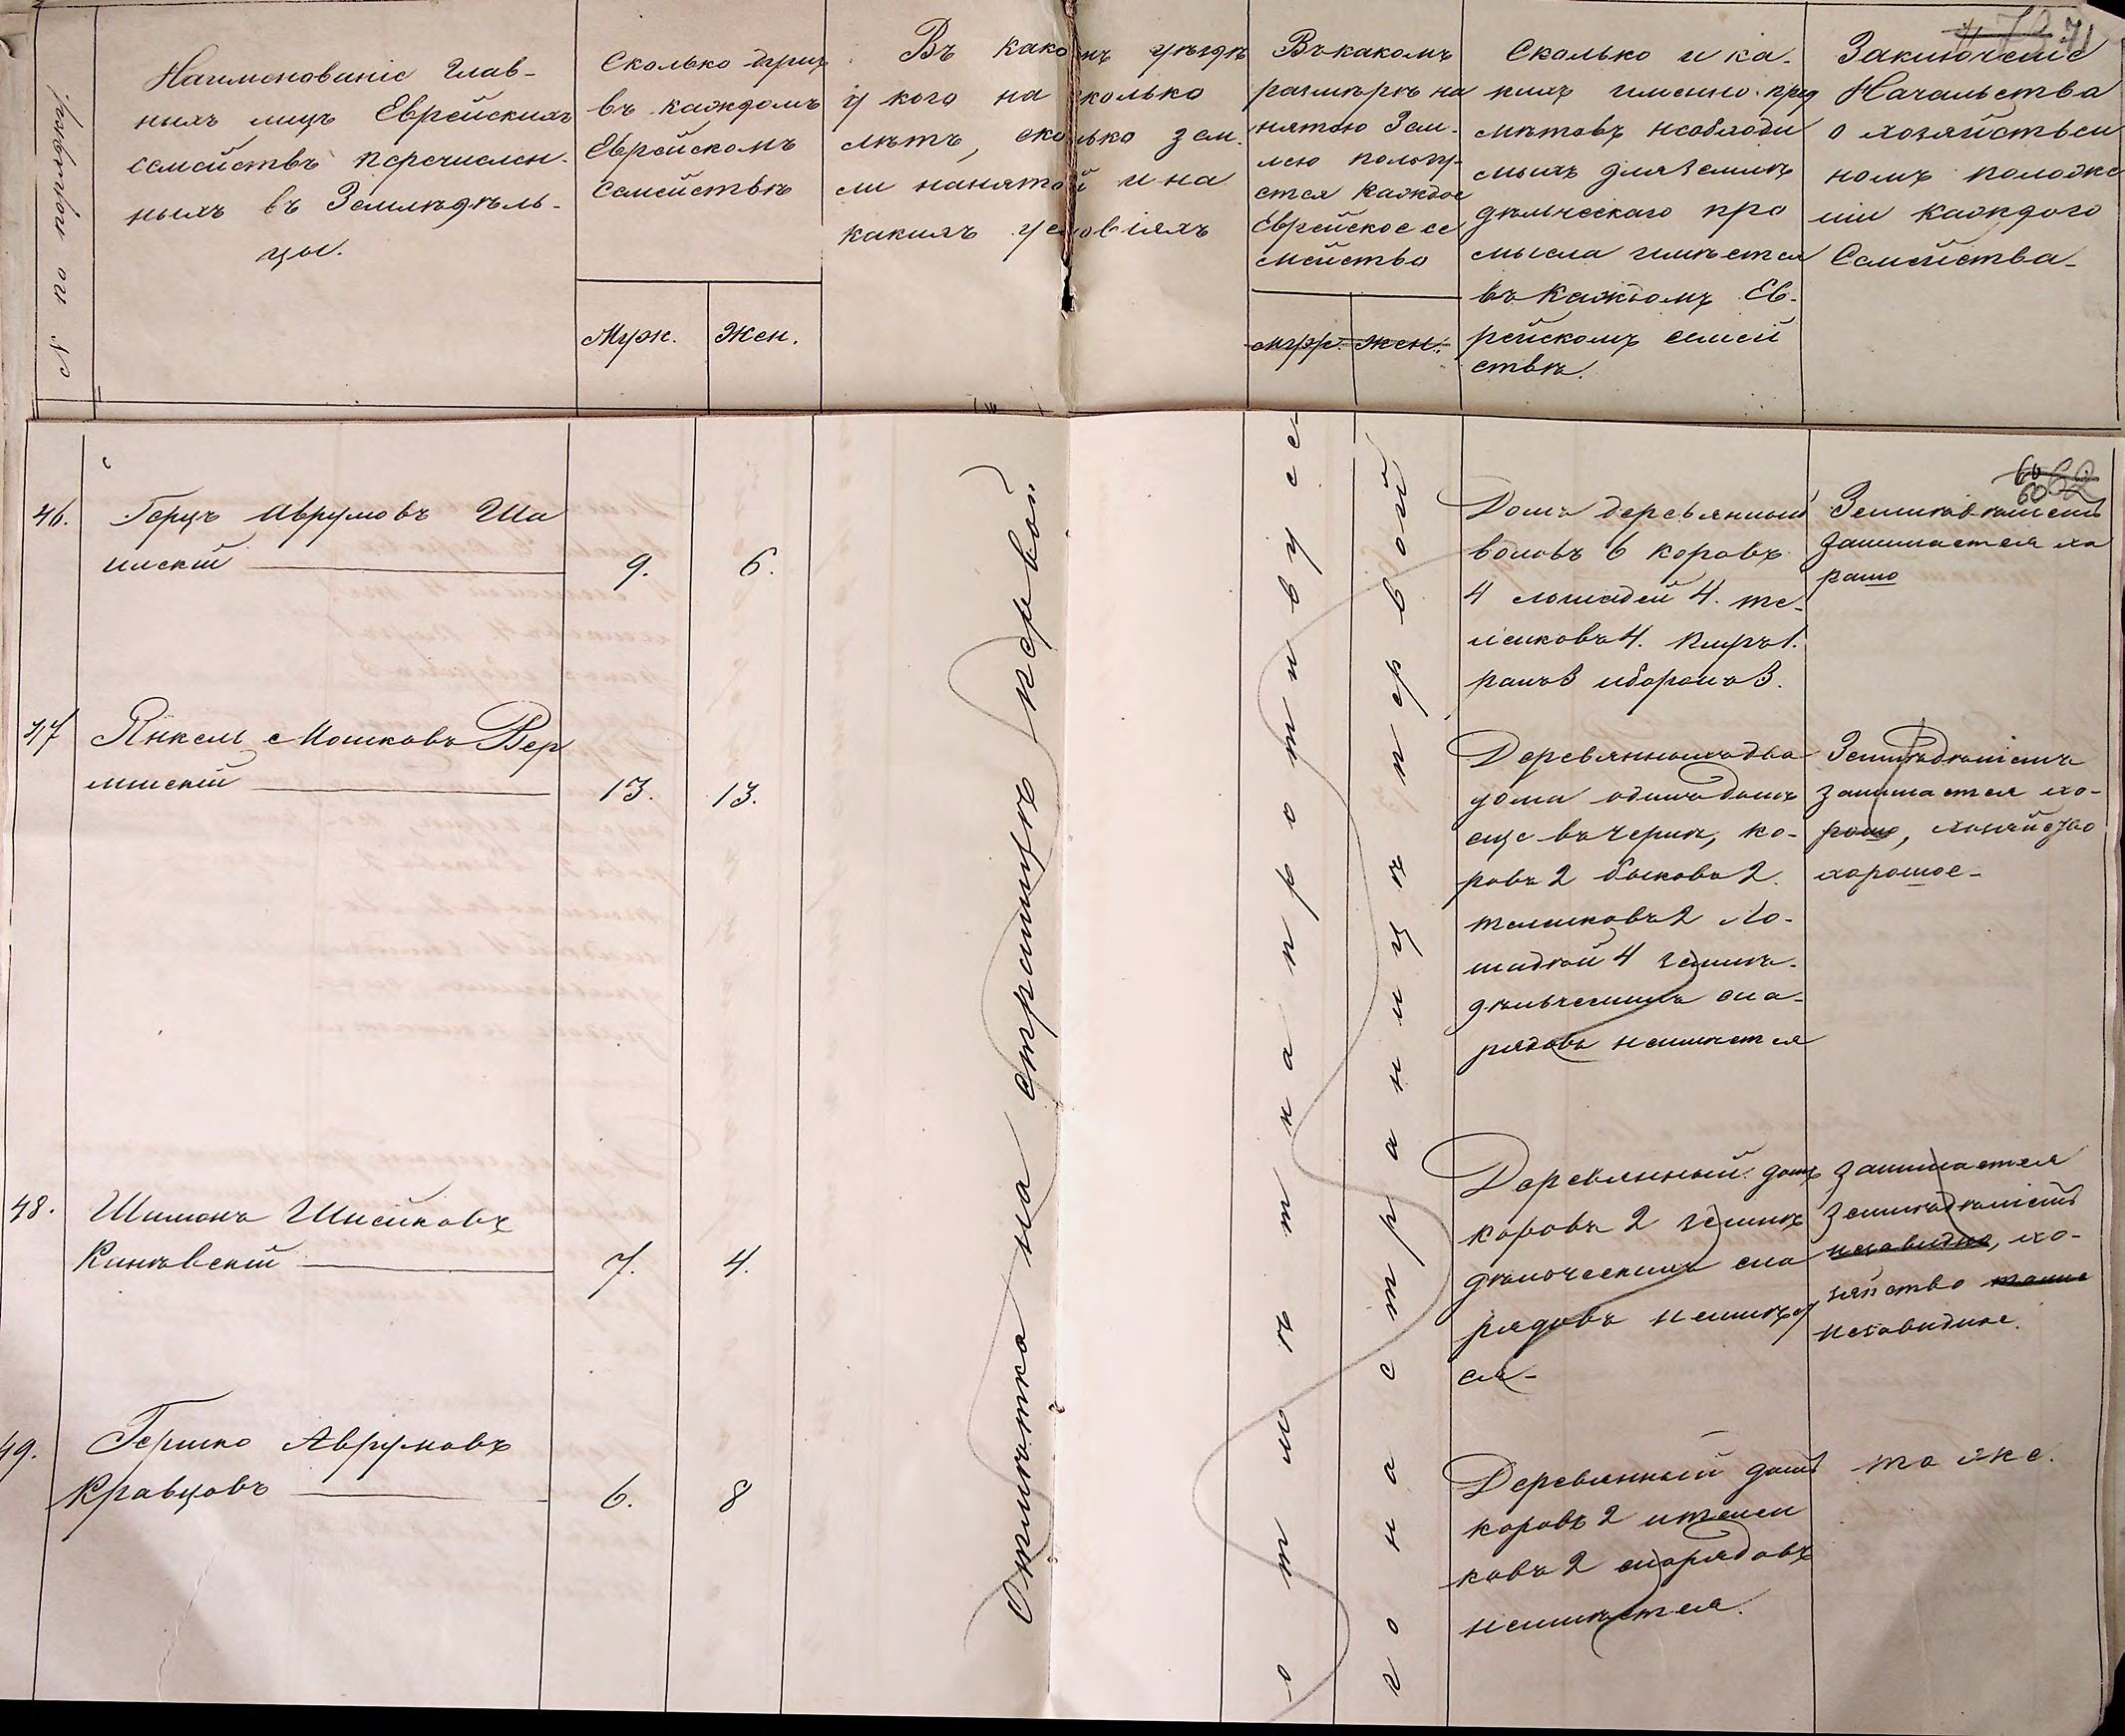 71
№ по порядку
Наименованіе глав-
ныхъ лицъ Еврейскихъ
семействъ перечислен-
ныхъ въ Земледѣль-
цы.
Сколько душъ
въ каждомъ
Еврейскомъ
семействѣ
Муж. Жен.
Въ какомъ уѣздѣ
у кого на сколько
лѣтъ, сколько зем-
ли нанятой и на
какихъ условіяхъ
Въ какомъ
размѣрѣ на
нятою Зем-
лею польу-
ется каждое
Еврейское се
мейство
Муж. Жен.
Сколько и ка-
кихъ именно пред
мѣтовъ необходи
мыхъ для земле
дѣльческаго про
мысла имѣется
въ каждомъ Ев-
рейскомъ семей
ствѣ.
Заключеніе
Начальства
о хозяйствен
номъ положе
ніи каждаго
Семейства
60
60 62
46. Герцъ Аврумовъ Ша
инскій
9. 6.
Домъ деревянный
воловъ 6 коровъ
4 лошадей 4. те-
лениковъ 4. плугъ 1.
ралъ 3 и боронъ 3.
Земледѣліемъ
занимается хо
рашо
47 Янкель Мошковъ Вер
минскій
13. 13.
Деревянныхъ два
дома одинъ домъ
еще въ чернѣ, ко-
ровъ 2 быковъ 2.
теликовъ 2 ло-
шадѣй 4 земле-
дѣльческихъ сна-
рядовъ неимѣется
Земледѣліемъ
занимается хо-
рошо, хозяйство
хорошое
48. Шимонъ Шиейковъ
Каневскій
7. 4.
Деревянный домъ
коровъ 2 земле
дѣльческихъ сна
рядовъ неимѣет
ся
занимается
земледѣліемъ
незавидно, хо-
зяйство также
незавидное.
49. Гершко Аврумовъ
Кравцовъ
6. 8
Деревянный домъ
коровъ 2 и телен
ковъ 2 снарядовъ
неимѣется.
то же.
Отмѣтка на страницѣ первой
отмѣтка противу се-
го на страницѣ первой